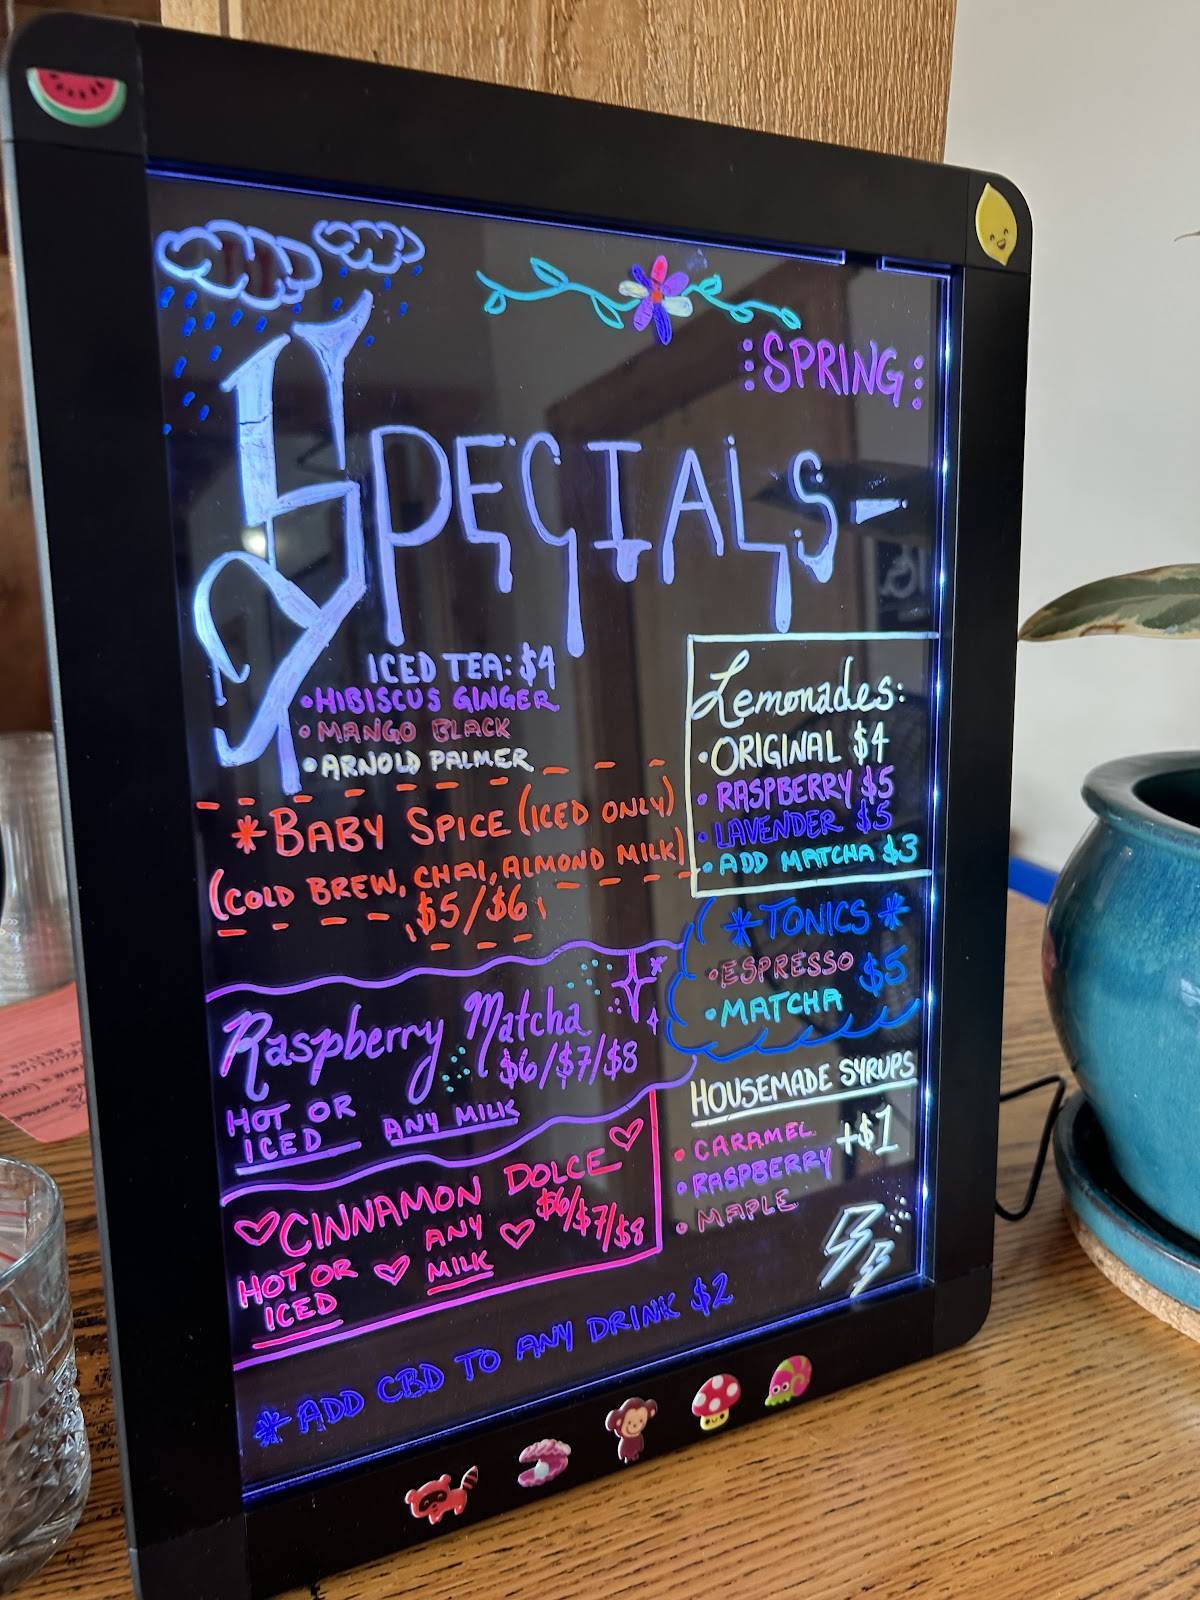 :SPRING:
SPECIALS-
ICED TEA: $4
•HIBISCUS GINGER
•MANGO BLACK
•ARNOLD PALMER
Lemonades:
•ORIGINAL $4
•RASPBERRY $5
•LAVENDER $5
•ADD MATCHA $3
*BABY SPICE (ICED ONLY)
(COLD BREW, CHAI, ALMOND MILK)
$5/$6
*TONICS*
•ESPRESSO
$5
•MATCHA
Raspberry Matcha
$6/$7/$8
HOT OR
ICED
ANY MILK
HOUSEMADE SYRUPS
•CARAMEL
+$1
•RASPBERRY
•MAPLE
♡CINNAMON DOLCE♡
$6/$7/$8
HOT OR
ICED
♡ ANY
MILK ♡
*ADD CBD TO ANY DRINK $2